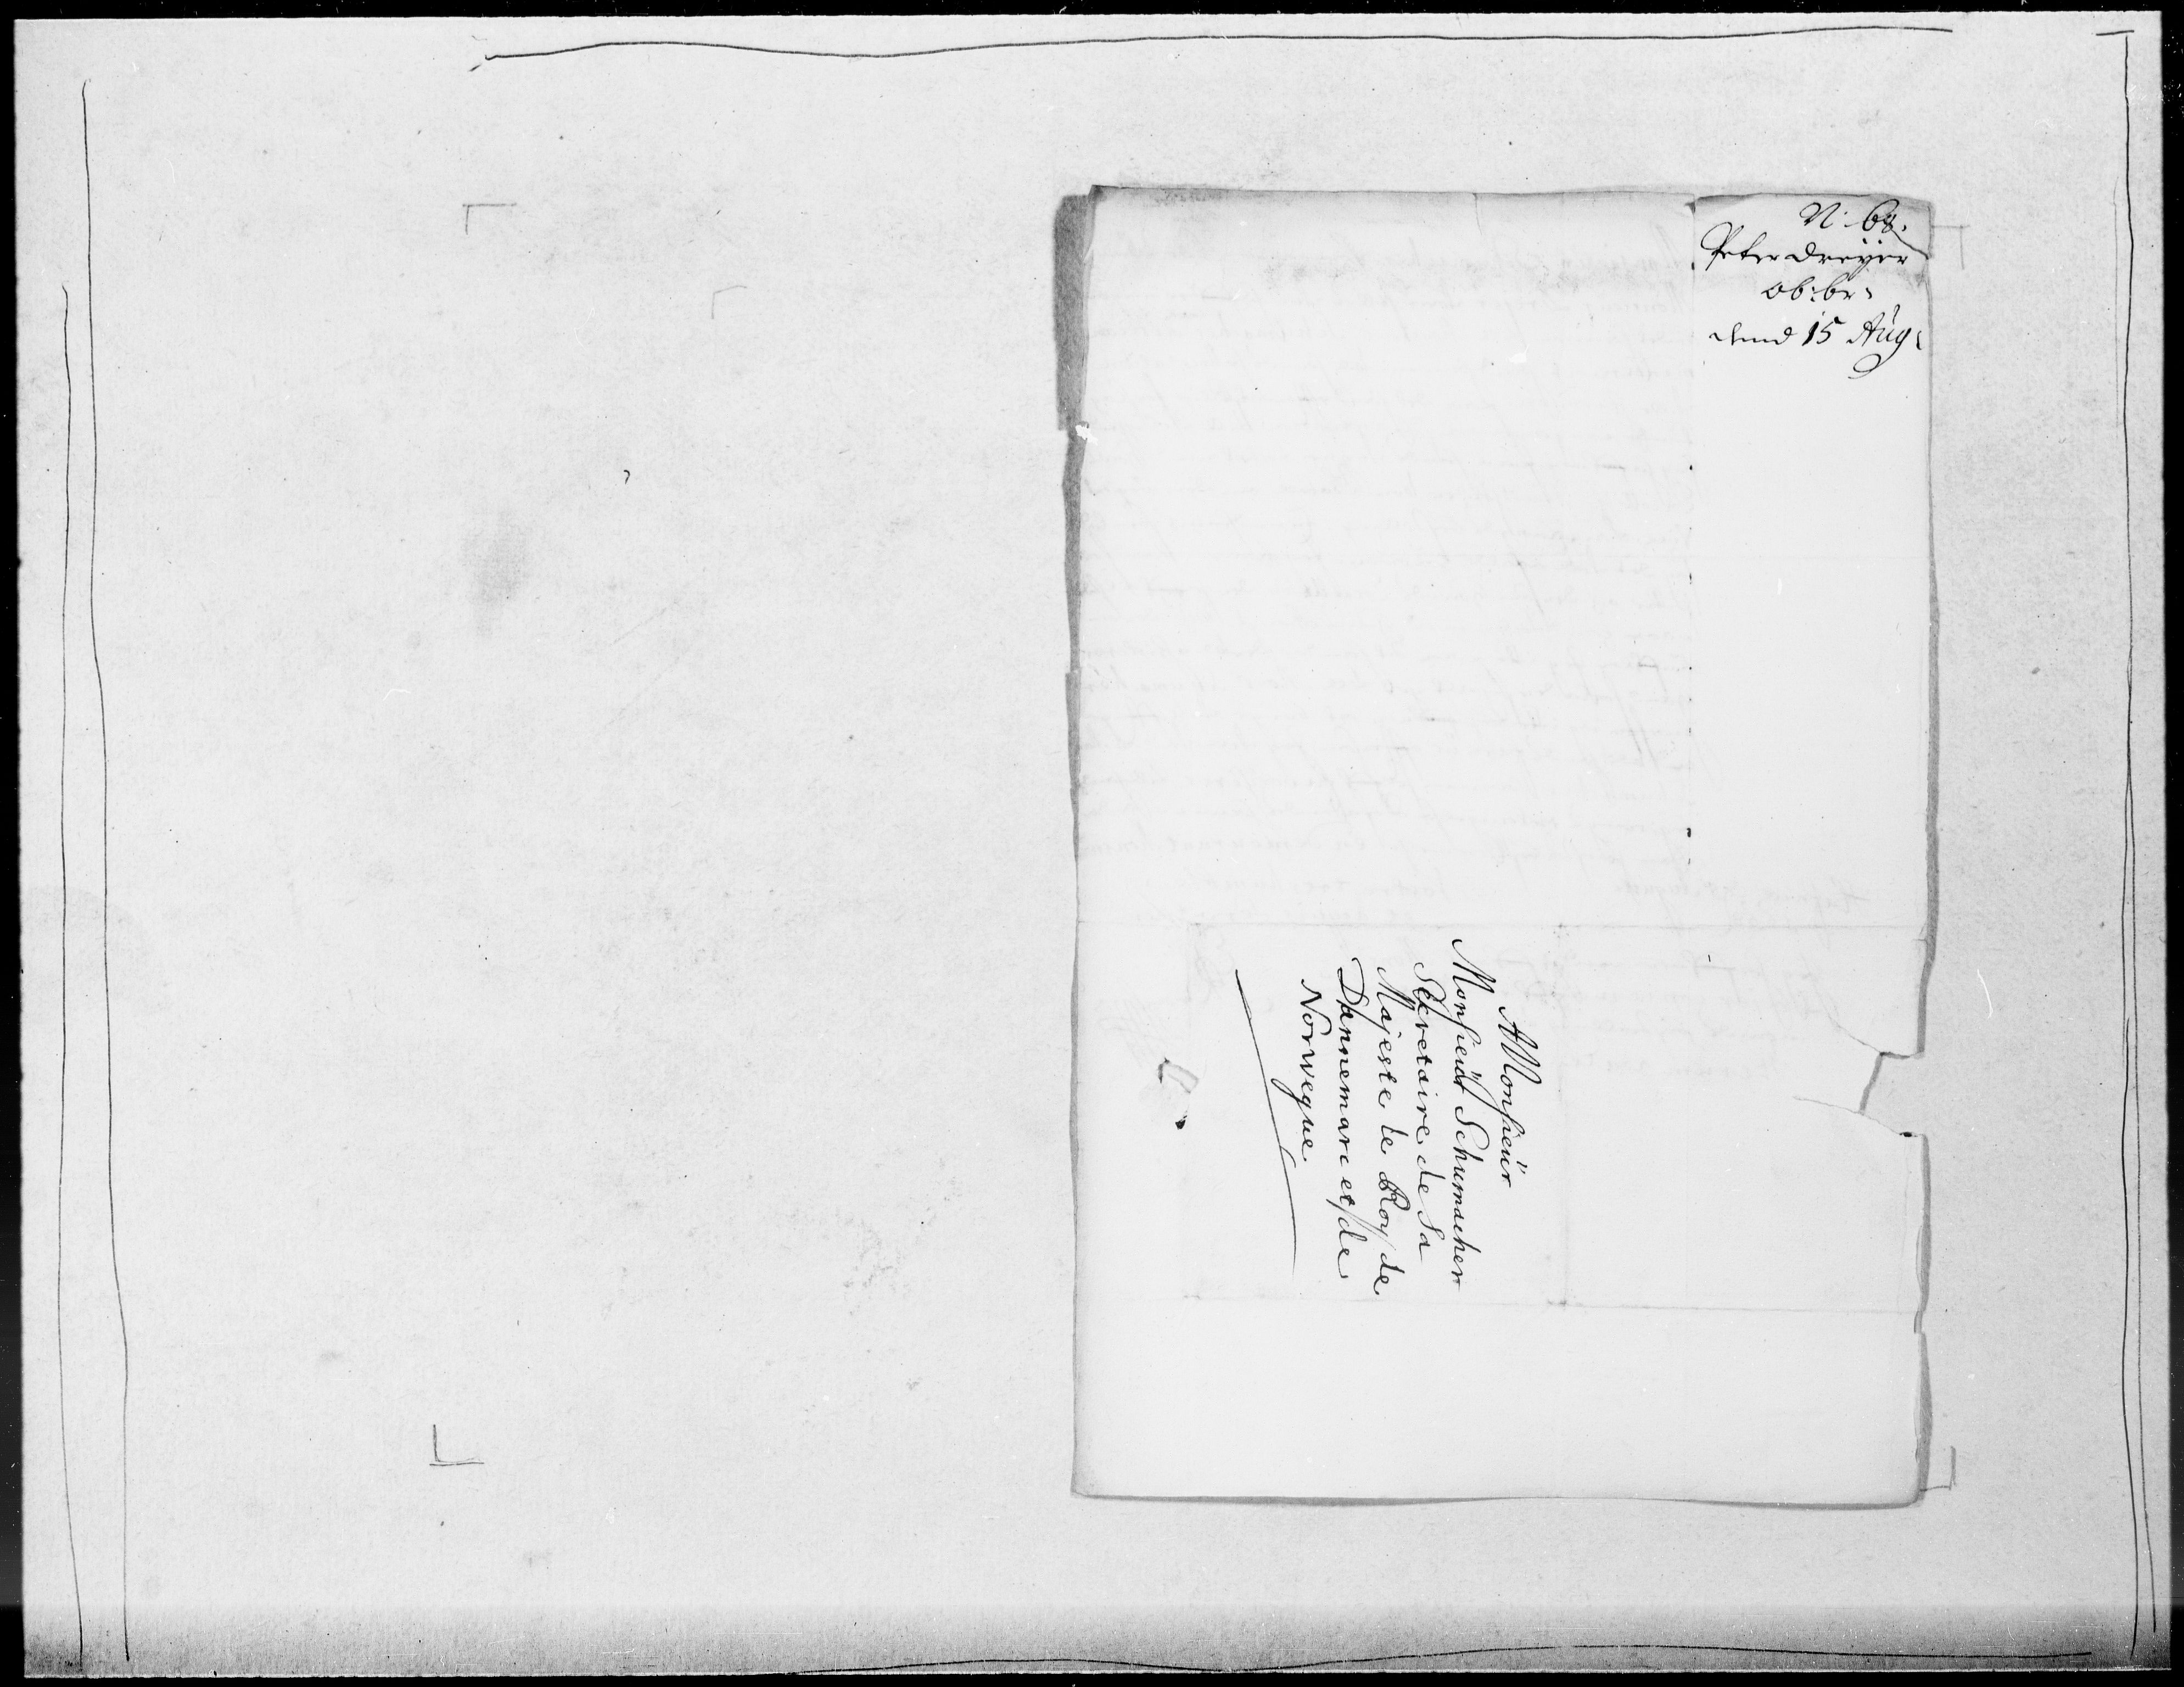 N: 68.
Peter Dreÿer
ob: br:
dend 15 Aug:
A Monsieur
Monsieur Schumacher
Secretaire de Sa
Majeste le Roy de
Dannemarc et de
Norvegue